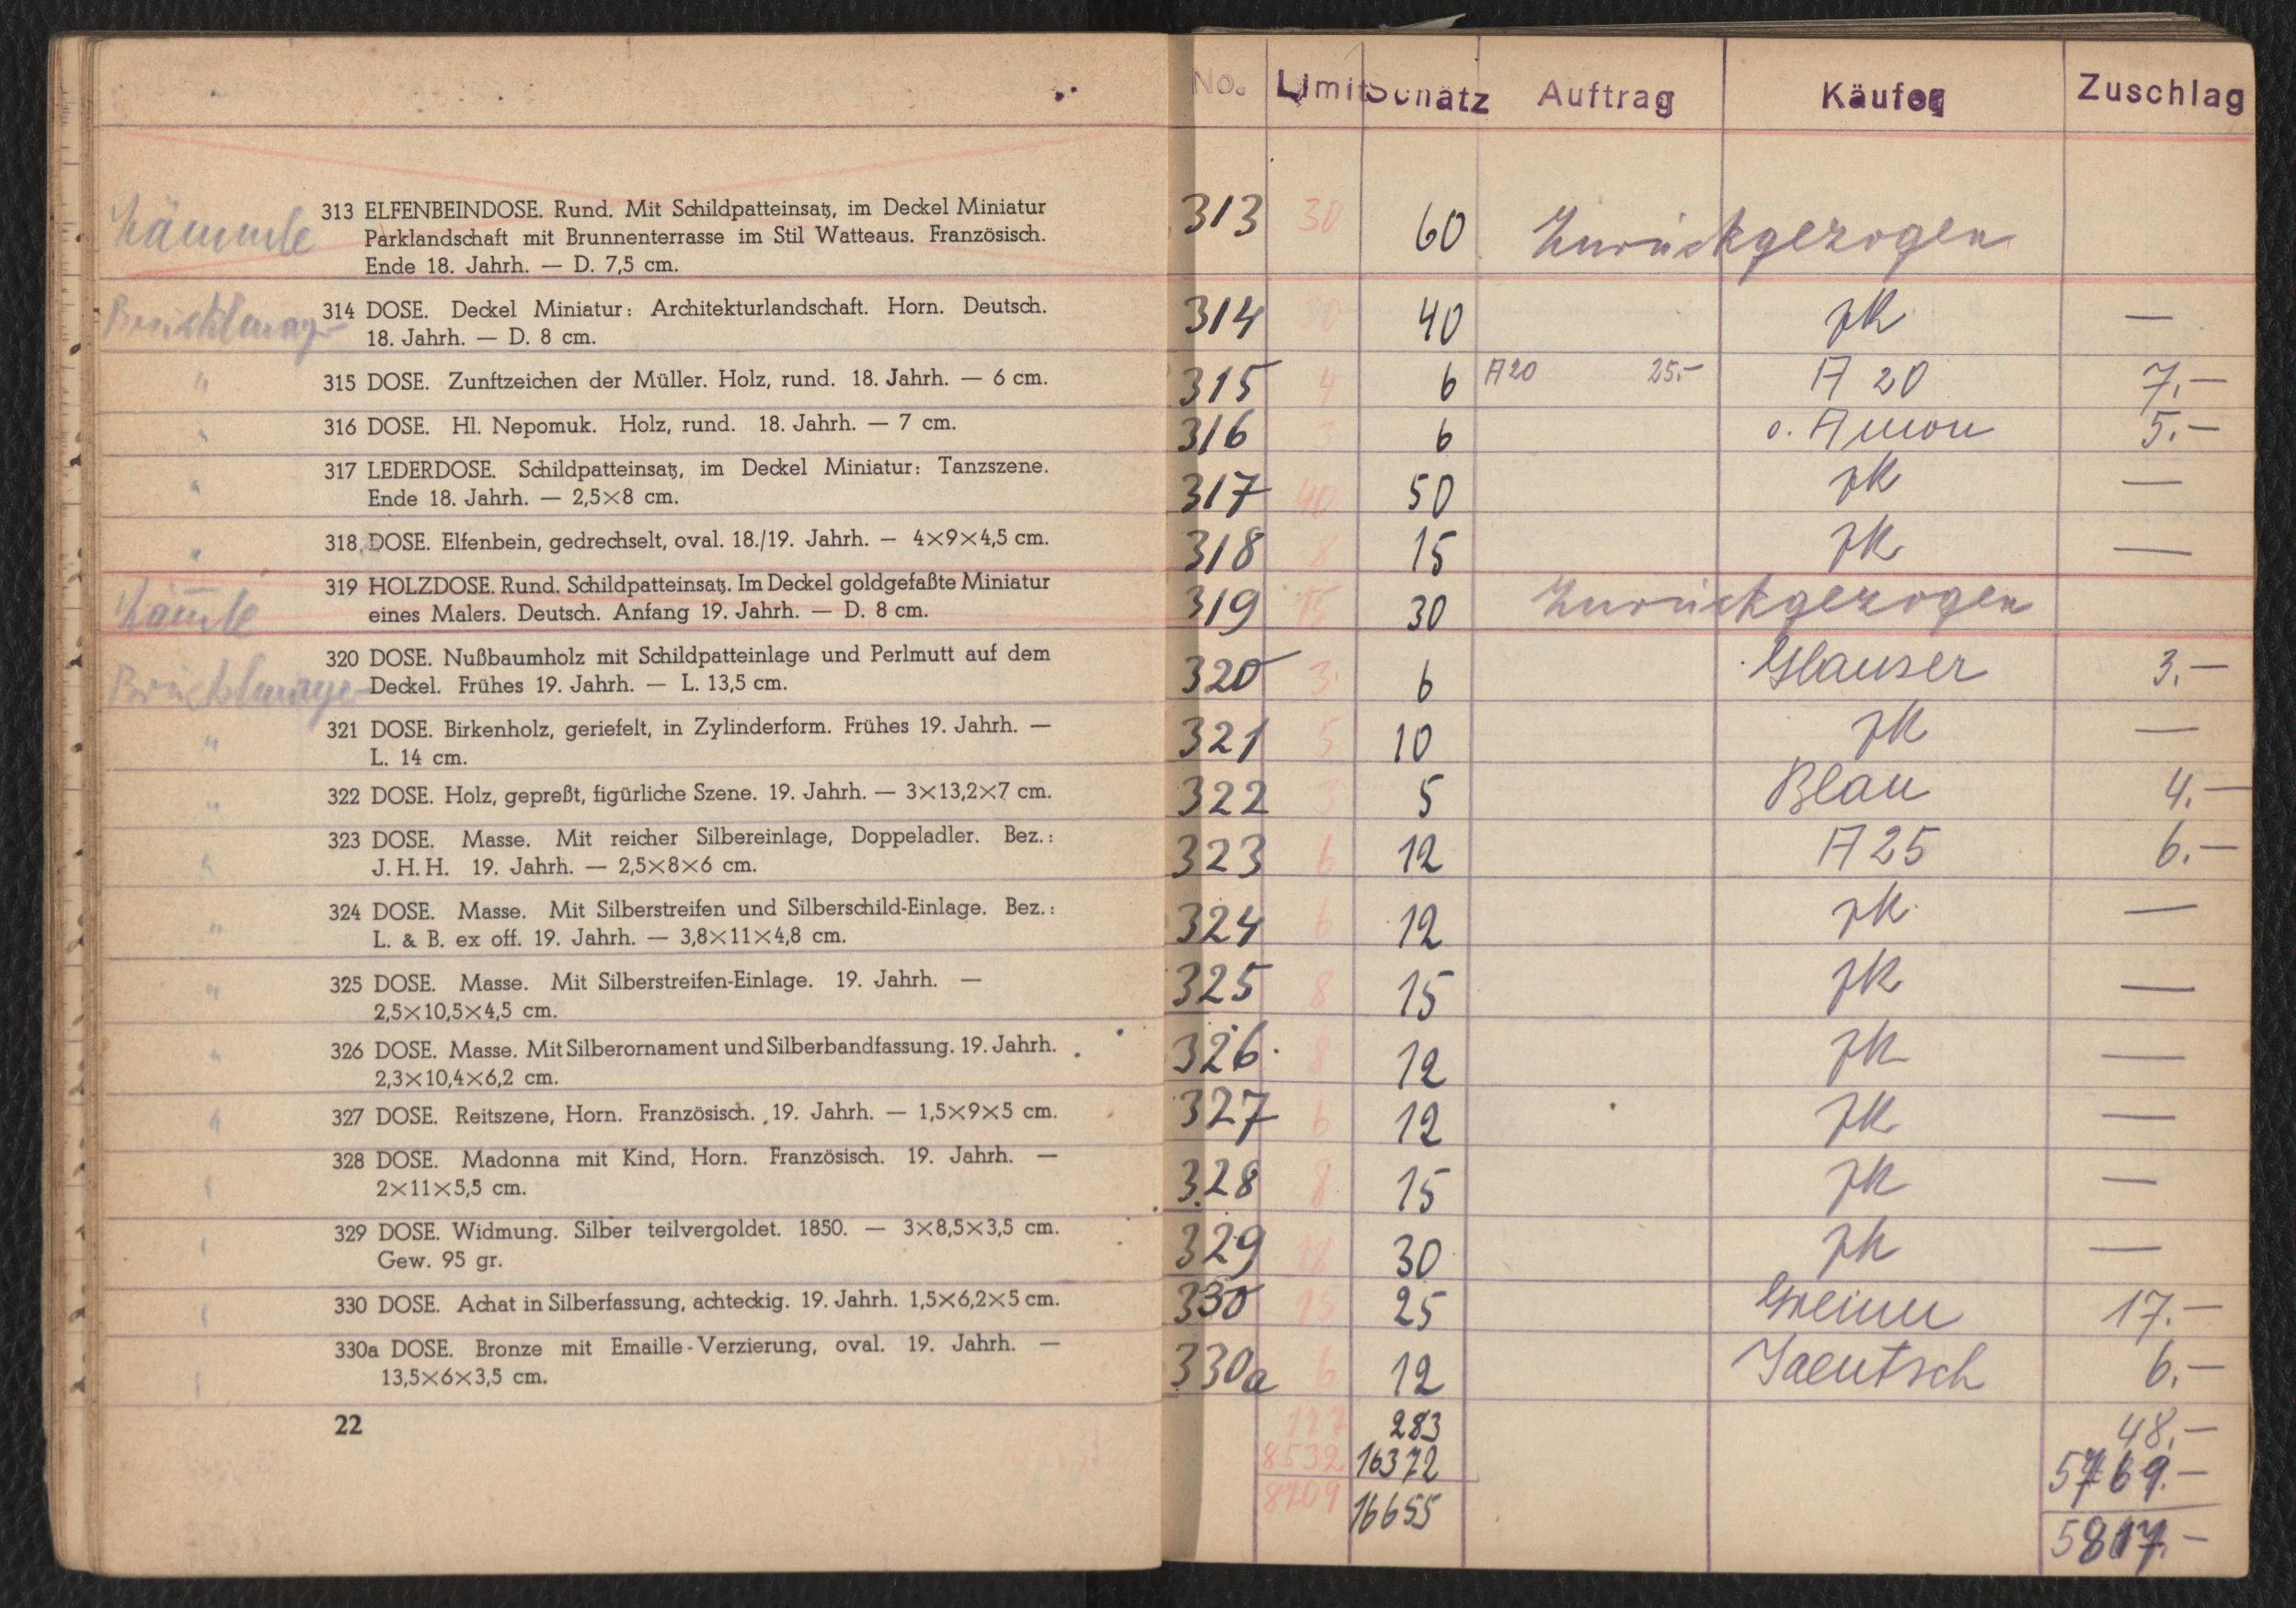 313 ELFENBEINDOSE. Rund. Mit Schildpatteinsatz, im Deckel Miniatur
Parklandschaft mit Brunnenterrasse im Stil Watteaus. Französisch.
Ende 18. Jahrh. — D. 7,5 cm.
314 DOSE. Deckel Miniatur: Architekturlandschaft. Horn. Deutsch.
18. Jahrh. — D. 8 cm.
" 315 DOSE. Zunftzeichen der Müller. Holz, rund. 18. Jahrh. — 6 cm.
" 316 DOSE. Hl. Nepomuk. Holz, rund. 18. Jahrh. — 7 cm.
" 317 LEDERDOSE. Schildpatteinsatz, im Deckel Miniatur: Tanzszene.
Ende 18. Jahrh. — 2,5×8 cm.
" 318 DOSE. Elfenbein, gedrechselt, oval. 18./19. Jahrh. — 4×9×4,5 cm.
319 HOLZDOSE. Rund. Schildpatteinsatz. Im Deckel goldgefaßte Miniatur
eines Malers. Deutsch. Anfang 19. Jahrh. — D. 8 cm.
320 DOSE. Nußbaumholz mit Schildpatteinlage und Perlmutt auf dem
Deckel. Frühes 19. Jahrh. — L. 13,5 cm.
" 321 DOSE. Birkenholz, geriefelt, in Zylinderform. Frühes 19. Jahrh. —
L. 14 cm.
" 322 DOSE. Holz, gepreßt, figürliche Szene. 19. Jahrh. — 3×13,2×7 cm.
" 323 DOSE. Masse. Mit reicher Silbereinlage, Doppeladler. Bez.:
J. H. H. 19. Jahrh. — 2,5×8×6 cm.
" 324 DOSE. Masse. Mit Silberstreifen und Silberschild-Einlage. Bez.:
L. & B. ex off. 19. Jahrh. — 3,8×11×4,8 cm.
" 325 DOSE. Masse. Mit Silberstreifen-Einlage. 19. Jahrh. —
2,5×10,5×4,5 cm.
" 326 DOSE. Masse. Mit Silberornament und Silberbandfassung. 19. Jahrh.
2,3×10,4×6,2 cm.
" 327 DOSE. Reitszene, Horn. Französisch. 19. Jahrh. — 1,5×9×5 cm.
328 DOSE. Madonna mit Kind, Horn. Französisch. 19. Jahrh. —
2×11×5,5 cm.
329 DOSE. Widmung. Silber teilvergoldet. 1850. — 3×8,5×3,5 cm.
Gew. 95 gr.
330 DOSE. Achat in Silberfassung, achteckig. 19. Jahrh. 1,5×6,2×5 cm.
330a DOSE. Bronze mit Emaille-Verzierung, oval. 19. Jahrh. —
13,5×6×3,5 cm.
22
No. Limit Schätz Auftrag Käufer Zuschlag
313 30 60 Zurückgezogen
314 30 40 zk —
315 4 6 A20 25.- A 20 7.—
316 3 6 v. Amon 5.—
317 40 50 zk —
318 8 15 zk —
319 15 30 Zurückgezogen
320 3 6 Glauser 3.—
321 5 10 zk —
322 3 5 Blau 4.—
323 6 12 A 25 6.—
324 6 12 zk —
325 8 15 zk —
326 8 12 zk —
327 6 12 zk —
328 8 15 zk —
329 30 zk —
330 15 25 17.—
330a 6 12 Jaentsch 6.—
283 48.—
8532 16372 5769.—
8709 16655 5817.—